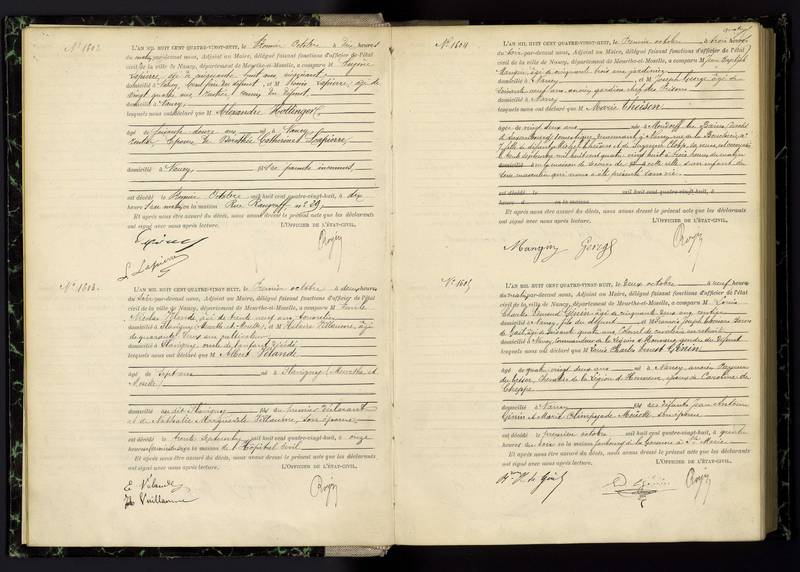 N° 1602
L'AN MIL HUIT CENT QUATRE-VINGT-HUIT, le Premier Octobre à dix heures
du matin par-devant nous, Adjoint au Maire, délégué faisant fonctions d'officier de l'état
civil de la ville de Nancy, département de Meurthe-et-Moselle, a comparu M Eugène
Lapierre, âgé de cinquante huit ans
domicilié à Nancy, et M Lapierre, âgé de
vingt quatre ans
domicilié à Nancy,
lesquels nous ont déclaré que M Alexandre Hollinger,
âgé de soixante douze ans né à Nancy
rentier, époux de Dorothée Catherine Lapierre,
domicilié à Nancy, fils de parents inconnus,
est décédé le Premier Octobre mil huit cent quatre-vingt-huit, à dix
heures du matin en la maison Rue n° 29,
Et après nous être assuré du décès, nous avons dressé le présent acte que les déclarants
ont signé avec nous après lecture. L'OFFICIER DE L'ÉTAT-CIVIL,
L Lapierre
N° 1603.
L'AN MIL HUIT CENT QUATRE-VINGT-HUIT, le Premier octobre à deux heures
du soir par-devant nous, Adjoint au Maire, délégué faisant fonctions d'officier de l'état
civil de la ville de Nancy, département de Meurthe-et-Moselle, a comparu M Emile
Nicolas Vélande, âgé de trente neuf ans, tonnelier
domicilié à Flavigny (Meurthe et Moselle), et M Hilaire Villaume, âgé
de quarante deux ans cultivateur
domicilié à Flavigny, oncle de l'enfant décédé
lesquels nous ont déclaré que M Albert Vélande
âgé de Sept ans né à Flavigny (Meurthe et
Moselle)
domicilié au dit Flavigny fils du premier déclarant
et de Nathalie Marguerite Villaume, son épouse,
est décédé le trente Septembre mil huit cent quatre-vingt-huit, à onze
heures en la maison de l'Hôpital Civil
Et après nous être assuré du décès, nous avons dressé le présent acte que les déclarants
ont signé avec nous après lecture. L'OFFICIER DE L'ÉTAT-CIVIL,
E Vélande
N° 1604
L'AN MIL HUIT CENT QUATRE-VINGT-HUIT, le Premier octobre à trois heures
du soir par-devant nous, Adjoint au Maire, délégué faisant fonctions d'officier de l'état
civil de la ville de Nancy, département de Meurthe-et-Moselle, a comparu M Jean Baptiste
Mangin, âgé de cinquante trois ans jardinier
domicilié à Nancy, et M Joseph George âgé de
soixante neuf ans, ancien gardien chef des Prisons
domicilié à Nancy
lesquels nous ont déclaré que M Marie Theisen
âgée de vingt deux ans née à Mondorff les Bains,
domiciliée à Nancy, rue de la Boucherie, n°
est accouchée
le trente Septembre mil huit cent quatre vingt huit à trois heures du matin
en la maison de Secours de cette ville d'un enfant du
sexe masculin qui nous a été présenté sans vie.
est décédé le mil huit cent quatre-vingt-huit, à
heures d en la maison
Et après nous être assuré du décès, nous avons dressé le présent acte que les déclarants
ont signé avec nous après lecture. L'OFFICIER DE L'ÉTAT-CIVIL,
Mangin George
N° 1605
L'AN MIL HUIT CENT QUATRE-VINGT-HUIT, le deux octobre à neuf heures
du matin par-devant nous, Adjoint au Maire, délégué faisant fonctions d'officier de l'état
civil de la ville de Nancy, département de Meurthe-et-Moselle, a comparu M Louis
Charles Edmond Génin âgé de cinquante deux ans rentier
domicilié à Nancy, fils du défunt et M
âgé de soixante quatre ans Colonel de cavalerie en retraite
domicilié à Nancy, Commandeur de la Légion d'Honneur, gendre du défunt
lesquels nous ont déclaré que M Louis Charles Ernest Génin
âgé de quatre vingt deux ans né à Nancy ancien Payeur
du trésor, Chevalier de la Légion d'Honneur, époux de Caroline de
Cheppe
domicilié à Nancy fils des défunts Jean Antoine
Génin et Marie Olimpiade Moucke son épouse
est décédé le premier octobre mil huit cent quatre-vingt-huit, à quatre
heures du soir en la maison faubourg de la Garenne à Ste Marie
Et après nous être assuré du décès, nous avons dressé le présent acte que les déclarants
ont signé avec nous après lecture. L'OFFICIER DE L'ÉTAT-CIVIL,
E. Génin